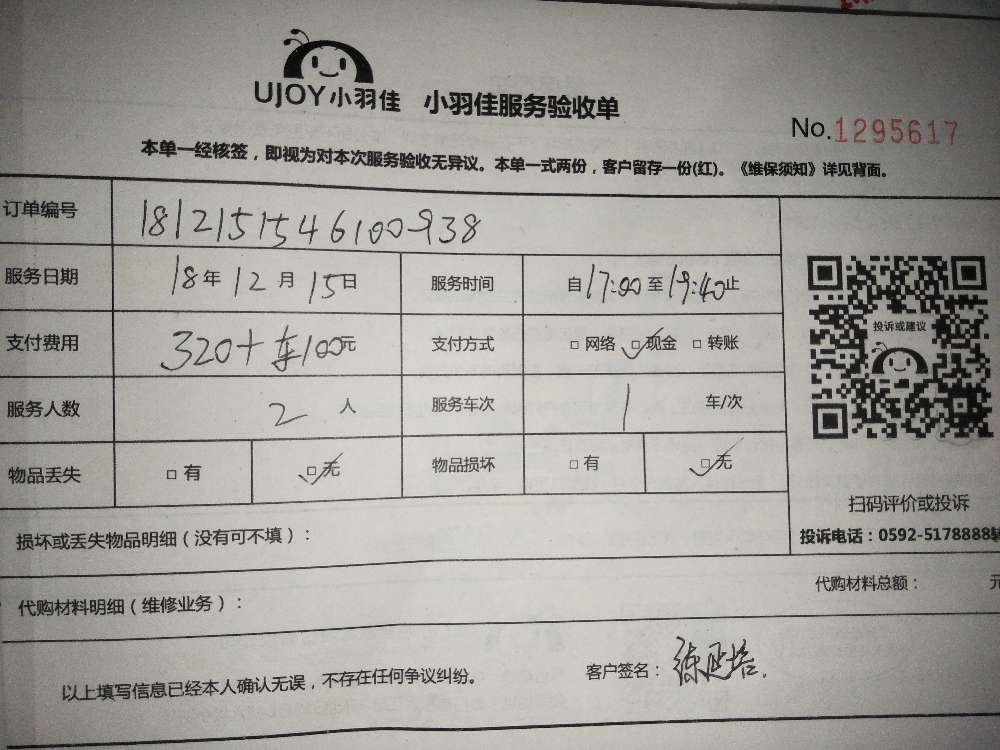 UJOY小羽佳 小羽佳服务验收单
No.1295617
本单一经核签，即视为对本次服务验收无异议。本单一式两份，客户留存一份(红)。《维保须知》详见背面。
订单编号 1812151546100938
服务日期 18年12月15日 服务时间 自17:00至19:40止
支付费用 320+车100元 支付方式 □网络 □现金 □转账
投诉或建议
服务人数 2人 服务车次 1 车/次
物品丢失 □有 □无 物品损坏 □有 □无
扫码评价或投诉
损坏或丢失物品明细（没有可不填）：
投诉电话：0592-5178888转
代购材料明细（维修业务）：
代购材料总额： 元
以上填写信息已经本人确认无误，不存在任何争议纠纷。
客户签名：